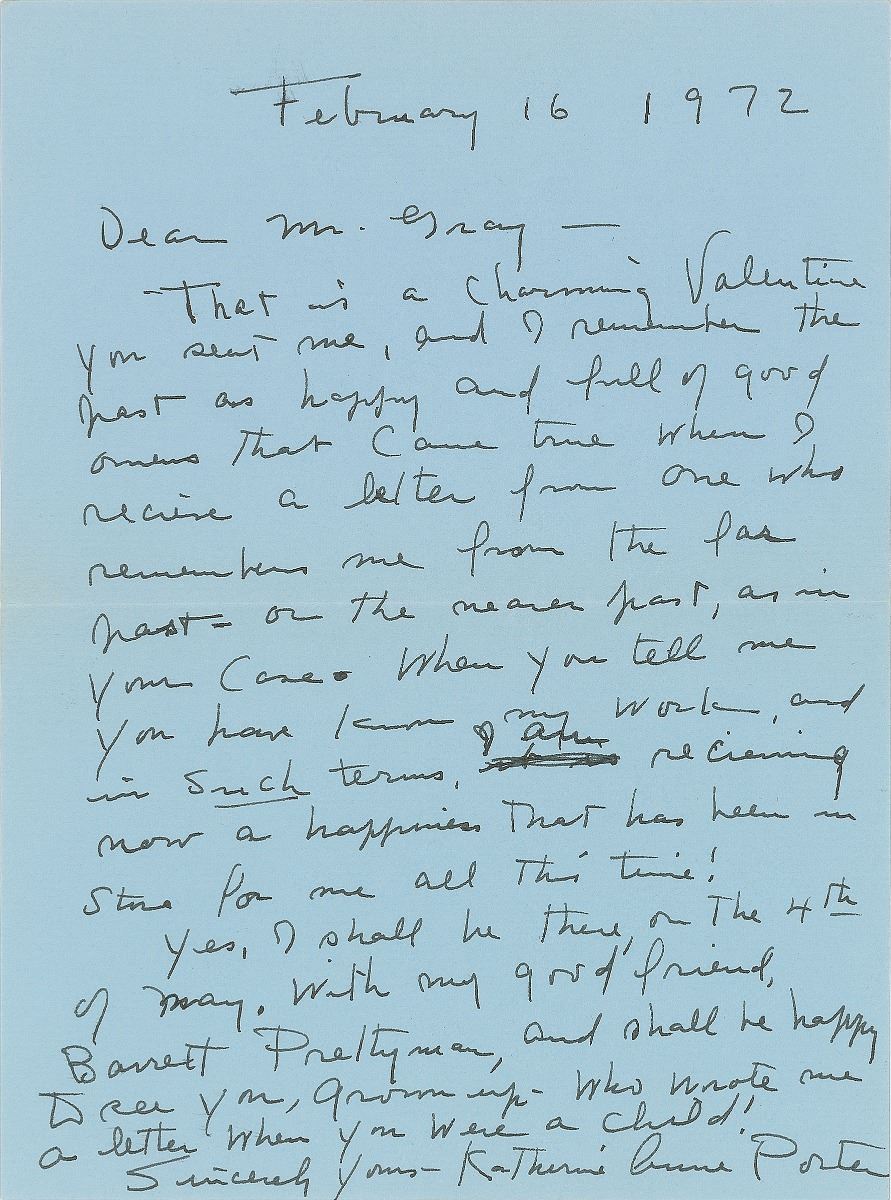 February 16 1972
Dear Mr. Gray —
That is a charming Valentine
you sent me, and I remember the
past as happy and full of good
omens that came true when I
recieve a letter from one who
remembers me from the far
past — or the nearer past, as in
your case. When you tell me
you have known my work, and
in such terms, I am recieving
now a happiness that has been in
store for me all this time!
Yes, I shall be there, on the 4th
of May. With my good friend,
Barrett Prettyman, and shall be happy
to see you, grown up - who wrote me
a letter when you were a child!
Sincerely yours — Katherine Anne Porter